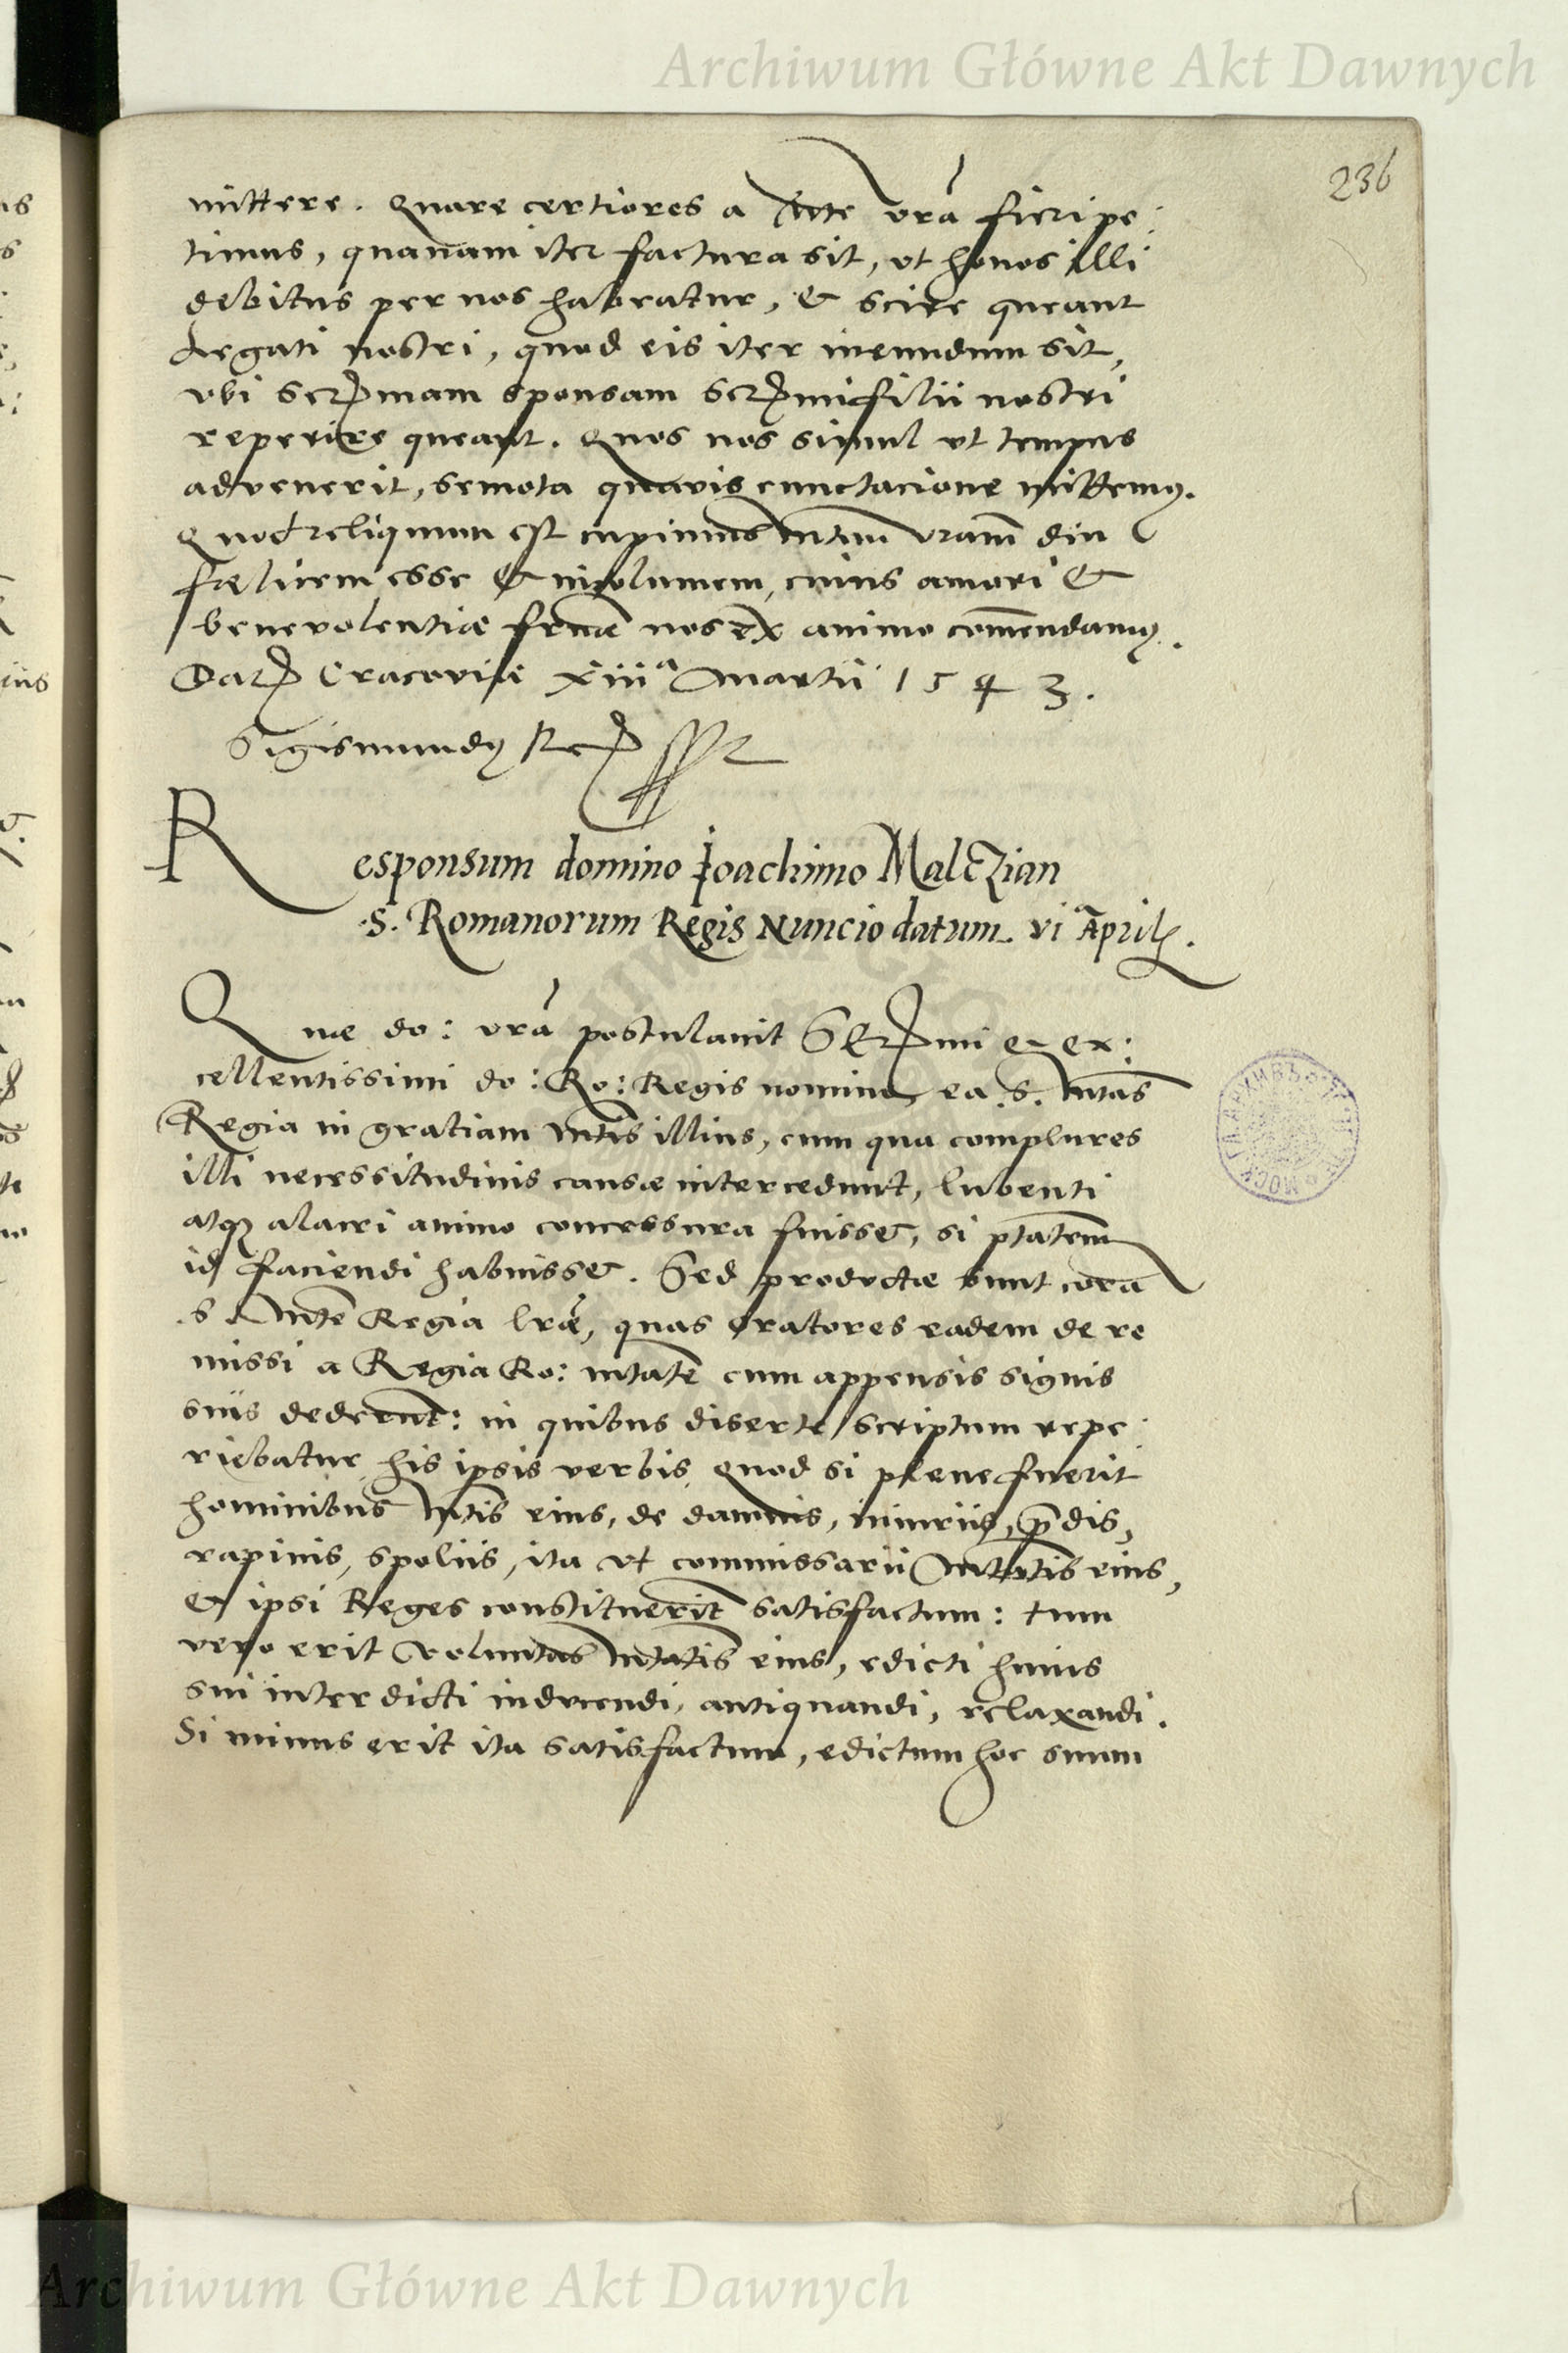 Archiwum Główne Akt Dawnych
236
mittere. Quare certiores a Mte vrã fieri pe:
timus, quanam iter factura sit, vt honos illi
debitus per nos habeatur, & scire queant
Legati nostri, quod eis iter ineundum sit,
vbi Sermam sponsam Sermi filii nostri
reperire queant. Quos nos simul vt tempus
advenerit, semota quavis cunctacione mittemq.
Quod reliquum est cupimus Mtem vram diu
fœlicem esse & incolumem, cuius amori &
benevolentiæ frnæ nos ex animo comendamq.
Dat Cracoviæ xiiiª Martii 1543.
Sigismundq Rex sst
Responsum domino Joachimo Malczian
.S. Romanorum Regis Nuncio datum vi Aprilis.
Quæ do: vrã postulavit SErmi & ex:
cellentissimi do: Ro: Regis nomine ea .S. Mtas
Regia in gratiam Mtis illius, cum qua complures
illi necessitudinis causæ intercedunt, lubenti
atq alacri animo concessura fuisset, si ptatem
id faciendi habuisset. Sed productæ sunt corã
.S. Mte Regia lræ, quas oratores eadem de re
missi a Regia Ro: Mtate cum appensis signis
suis dederunt: in quibus diserte scriptum repe:
riebatur his ipsis verbis, quod si plene fuerit
hominibus Mtis eius, de damnis, iniuriis, pdis,
rapinis, spoliis, ita vt commissarii Mtatis eius,
& ipsi Reges constituerint satisfactum: tum
vero erit voluntas Mtatis eius, edicti huius
sui interdicti inducendi, antiquandi, relaxandi.
Si minus erit ita satisfactum, edictum hoc suum
Archiwum Główne Akt Dawnych